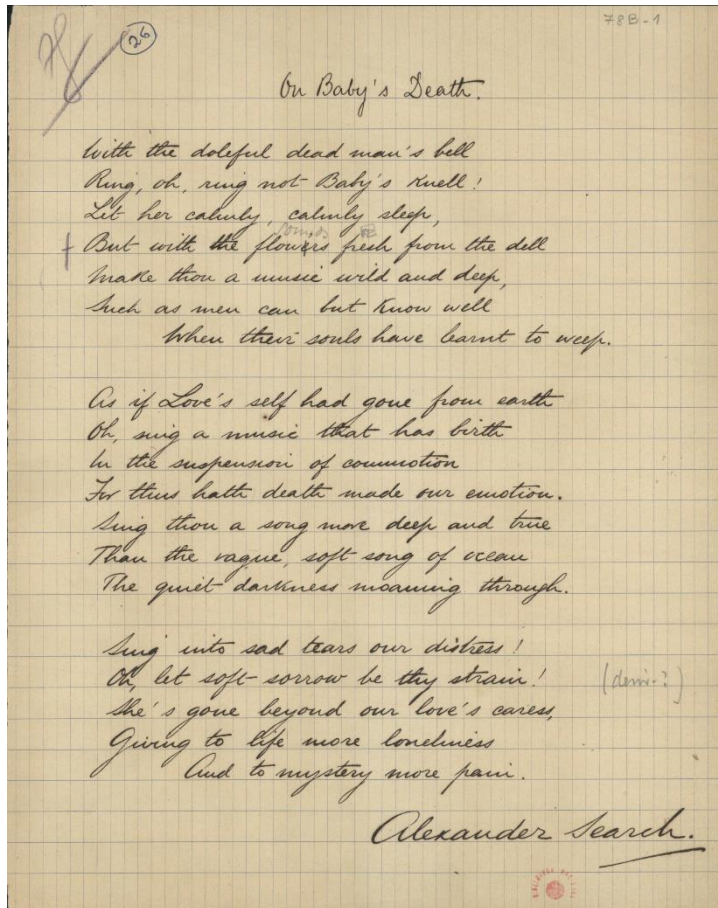 78B-1
26
On Baby's Death.
With the doleful dead man's bell
Ring, oh, ring not Baby's knell!
Let her calmly, calmly sleep,
But with the flowers fresh from the dell
Make thou a music wild and deep,
Such as men can but know well
When their souls have learnt to weep.
As if Love's self had gone from earth
Oh, sing a music that has birth
In the suspension of commotion
For thus hath death made our emotion.
Sing thou a song more deep and true
Than the vague, soft song of ocean
The quiet darkness moaning through.
Sing into sad tears our distress!
Oh, let soft sorrow be thy strain! (demi-?)
She's gone beyond our love's caress,
Giving to life more loneliness
And to mystery more pain.
Alexander Search.